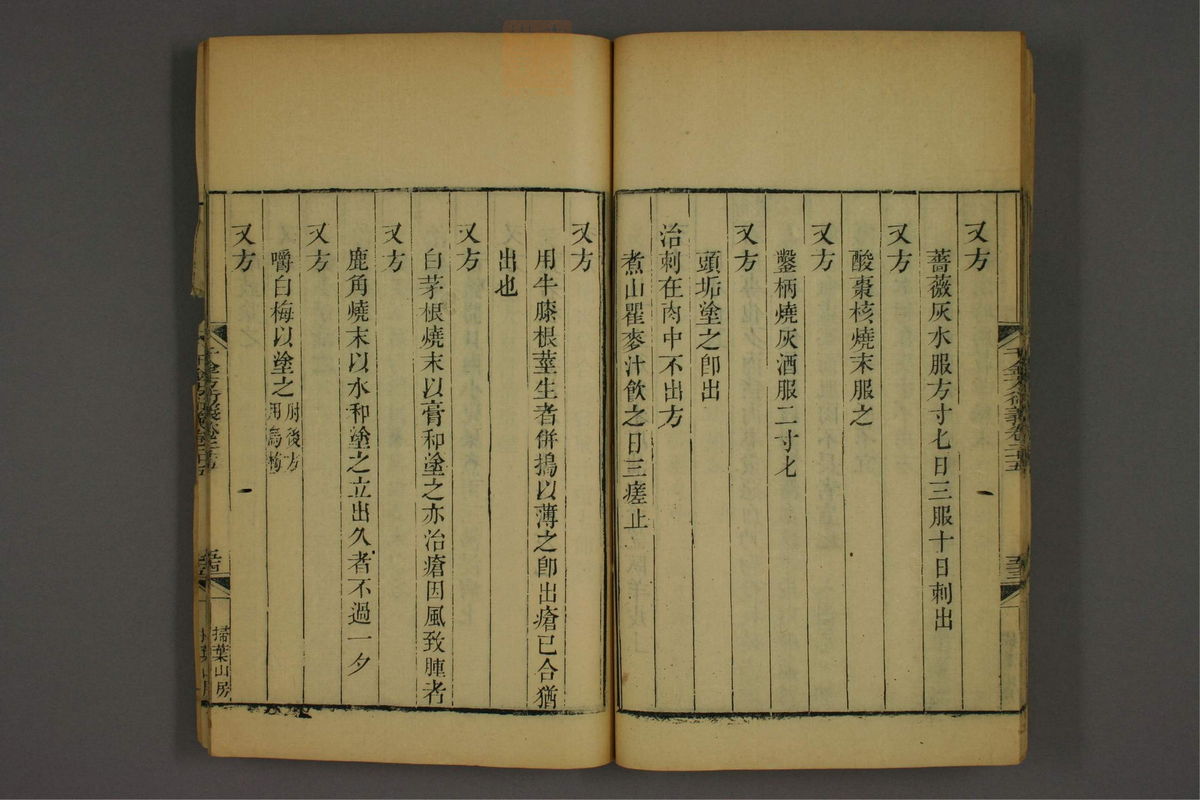 又方
薔薇灰水服方寸匕日三服十日刺出
又方
酸棗核燒末服之
又方
鑿柄燒灰酒服二寸匕
又方
頭垢塗之卽出
治刺在肉中不出方
煮山瞿麥汁飮之日三瘥止
千金方衍義卷二十五
又方
用牛膝根莖生者併搗以薄之卽出瘡已合猶
出也
又方
白茅根燒末以膏和塗之亦治瘡因風致腫者
又方
鹿角燒末以水和塗之立出久者不過一夕
又方
嚼白梅以塗之肘後方用烏梅
又方
千金方衍義卷二十五
掃葉山房